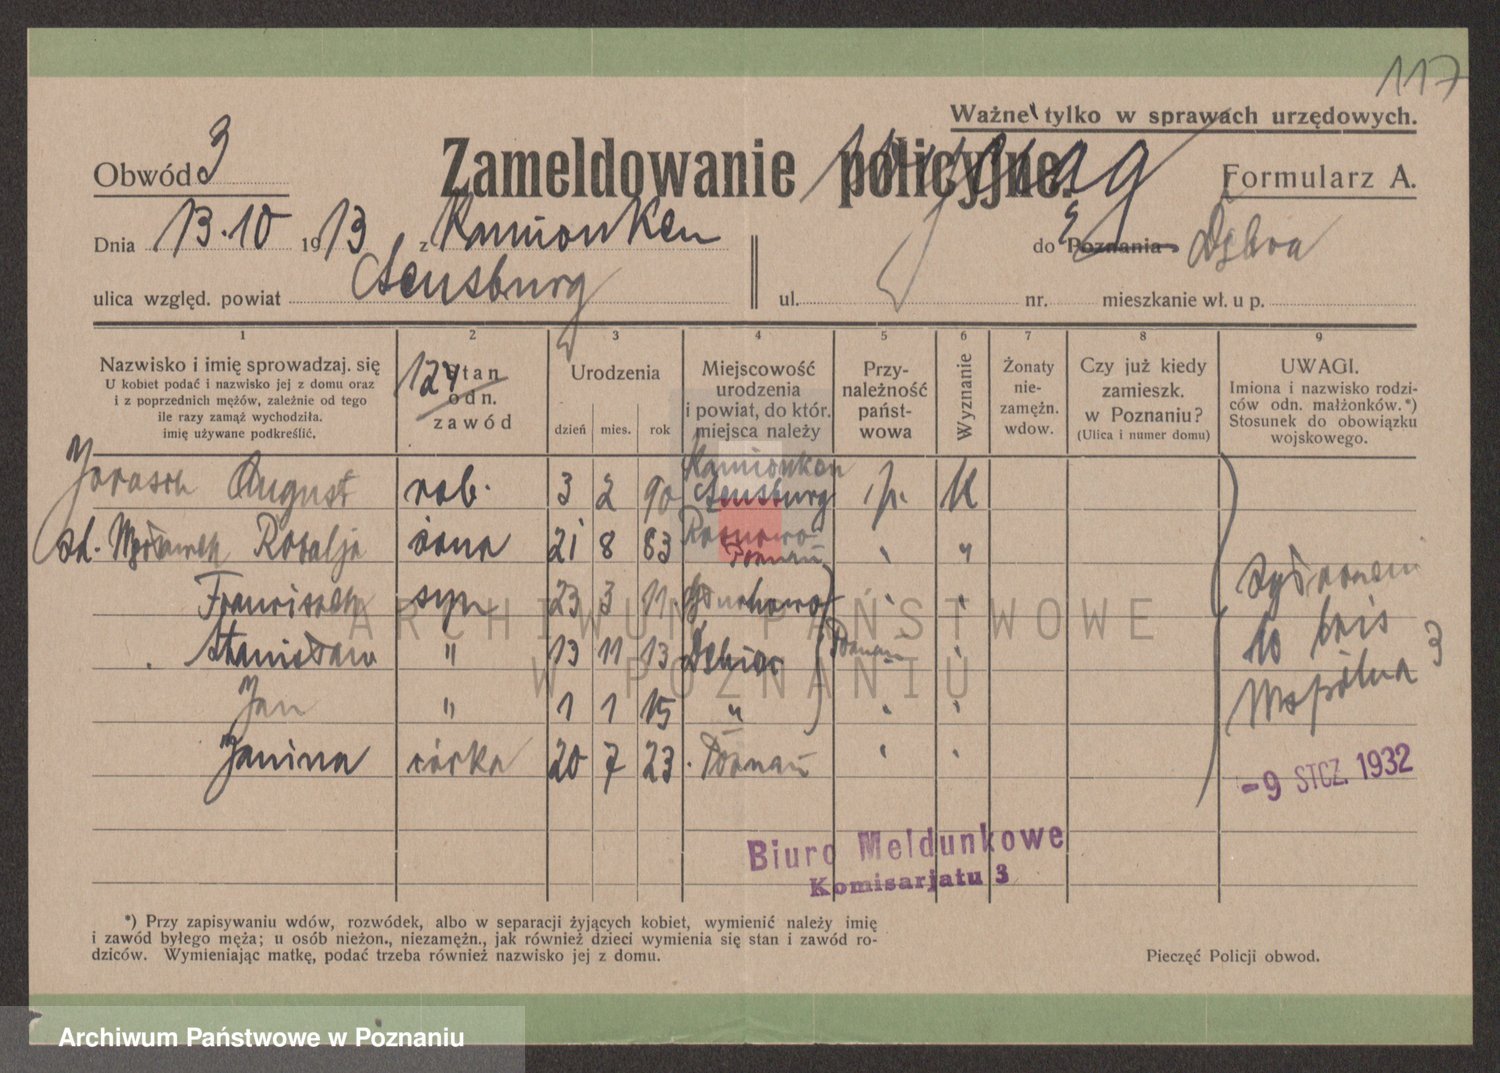 117
Ważne tylko w sprawach urzędowych.
Obwód 3
Zameldowanie policyjne.
Formularz A.
Dnia 13.10 1913 z Kamionken
do Poznania Dębca
ulica względ. powiat Sensburg
ul. nr. mieszkanie wł. u p.
1 2 3 4 5 6 7 8 9
Nazwisko i imię sprowadzaj. się
U kobiet podać i nazwisko jej z domu oraz
i z poprzednich mężów, zależnie od tego
ile razy zamąż wychodziła.
imię używane podkreślić.
124
Stan
odn.
zawód
Urodzenia
dzień mies. rok
Miejscowość
urodzenia
i powiat, do któr.
miejsca należy
Przy-
należność
państ-
wowa
Wyznanie
Żonaty
nie-
zamężn.
wdow.
Czy już kiedy
zamieszk.
w Poznaniu?
(Ulica i numer domu)
UWAGI.
Imiona i nazwisko rodzi-
ców odn. małżonków.*)
Stosunek do obowiązku
wojskowego.
Jorasch August rob. 3 2 90 Kamionken Sensburg p. K
zd. Rozalja żona 21 8 83 Poznań
Franciszek syn 23 3 11
Stanisław " 13 11 13 Dębiec Poznań
Jan " 1 1 15 "
Janina córka 20 7 23 Poznań
10 bris
Wspólna 3
-9 STCZ. 1932
Biuro Meldunkowe
Komisarjatu 3
ARCHIWUM PAŃSTWOWE
W POZNANIU
*) Przy zapisywaniu wdów, rozwódek, albo w separacji żyjących kobiet, wymienić należy imię
i zawód byłego męża; u osób nieżon., niezamężn., jak również dzieci wymienia się stan i zawód ro-
dziców. Wymieniając matkę, podać trzeba również nazwisko jej z domu.
Pieczęć Policji obwod.
Archiwum Państwowe w Poznaniu